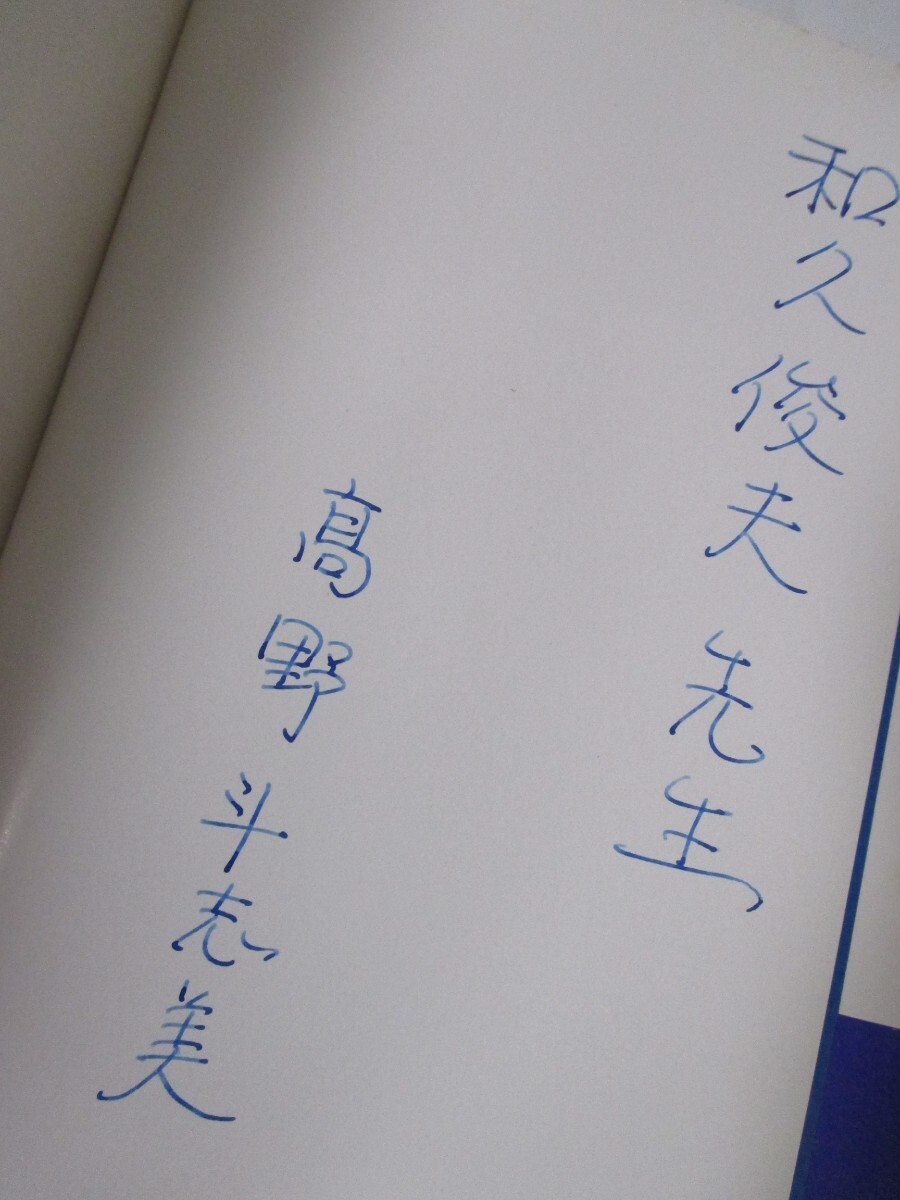 和久俊夫先生
高野斗志美